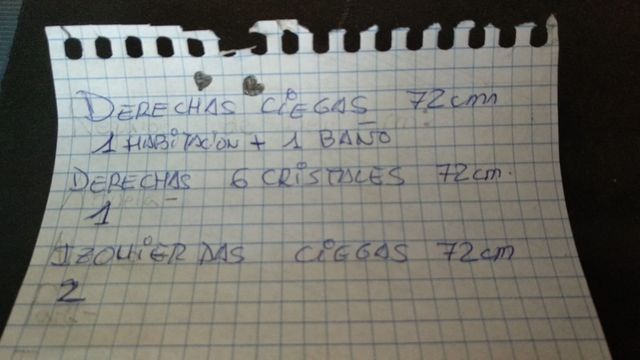 DERECHAS CIEGAS 72cm
1 HABITACION + 1 BAÑO
DERECHAS 6 CRISTALES 72cm.
1
IZQUIERDAS CIEGAS 72cm
2